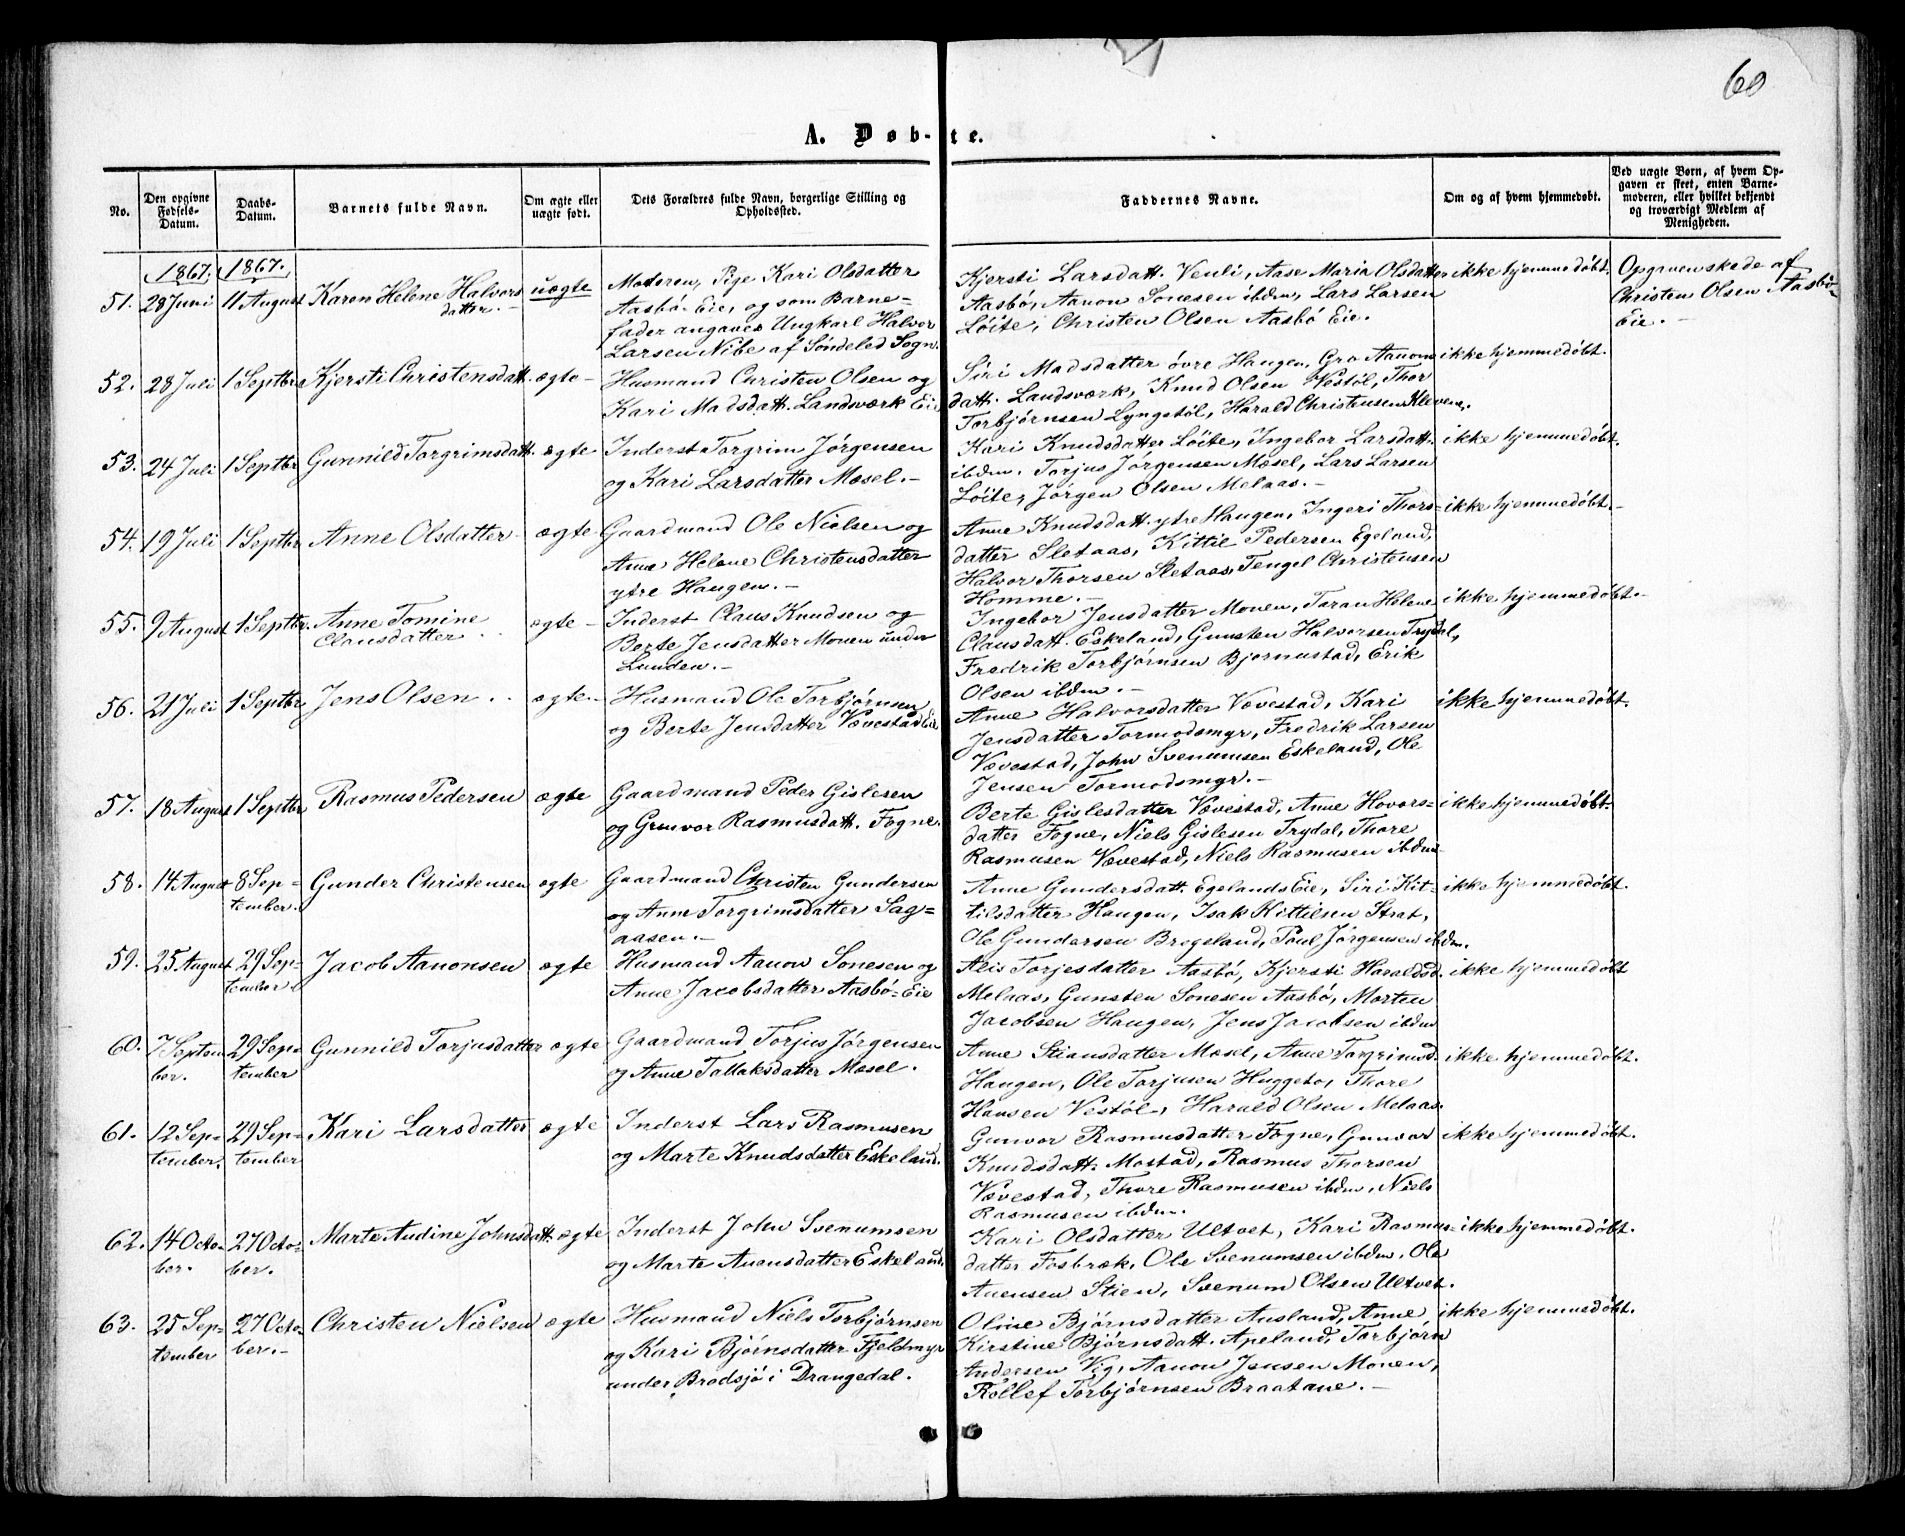 60
A. Døbte.
No.
Den opgivne
Fødsels-
Datum.
Daabs-
Datum.
Barnets fulde Navn.
Om ægte eller
uægte født.
Dets Forældres fulde Navn, borgerlige Stilling og
Opholdssted.
Faddernes Navne.
Om og af hvem hjemmedøbt.
Ved uægte Børn, af hvem Op-
gaven er skeet, enten Barne-
moderen, eller hvilket bekjendt
og troværdigt Medlem af
Menigheden.
1867. 1867.
51. 28 Juni 11 August Karen Helene Halvors
datter. uægte
Moderen, Pige Kari Olsdatter
Aasbø Eie, og som Barne-
fader angaves Ungkarl Halvor
Larsen Nibe af Søndeled Sogn.
Kjersti Larsdatt. Venli, Aase Maria Olsdatter
Aasbø, Aanon Sonesen ibdm, Lars Larsen
Löite, Christen Olsen Aasbö Eie.
ikke hjemmedøbt.
Opgaven skede af
Christen Olsen Aasbö-
Eie.
52. 28 Juli 1 Septbr Kjersti Christensdatt. ægte
Husmand Christen Olsen og
Kari Madsdatt. Landsværk Eie
Siri Madsdatter övre Haugen, Gro Aanons
datt. Landsværk, Knud Olsen Vestöl, Thor
Torbjörnsen Lyngstöl, Harald Christensen Klevene.
ikke hjemmedøbt.
53. 24 Juli 1 Septbr Gunnild Torgrimsdatt. ægte
Inderst Torgrim Jörgensen
og Kari Larsdatter Mæsel.
Kari Knudsdatter Löite, Ingebor Larsdatt.
ibdm. Torjus Jörgensen Mæsel, Lars Larsen
Löite, Jörgen Olsen Melaas.
ikke hjemmedøbt.
54. 19 Juli 1 Septbr Anne Olsdatter ægte
Gaardmand Ole Nielsen og
Anne Helene Christensdatter
ytre Haugen.
Anne Knudsdatt. ytre Haugen, Ingeri Thors-
datter Sletaas, Kittil Pedersen Egeland,
Halvor Thorsen Sletaas, Tengel Christensen
Homme.
ikke hjemmedøbt.
55. 9 August 1 Septbr. Anne Tomine
Clausdatter ægte
Inderst Claus Knudsen og
Berte Jensdatter Monen under
Lunden.
Ingebor Jensdatter Monen, Taran Helene
Clausdatt. Eskeland, Gunsten Halvorsen Trydal,
Fredrik Torbjörnsen Bjornustad, Erik
Olsen ibdm.
ikke hjemmedøbt.
56. 21 Juli 1 Septbr Jens Olsen ægte
Husmand Ole Torbjörnsen
og Berte Jensdatter Vævestad Eie
Anne Halvorsdatter Vævestad, Kari
Jensdatter Tormodsmyr, Fredrik Larsen
Vævestad, John Svenumsen Eskeland, Ole
Jensen Tormodsmyr.
ikke hjemmedøbt.
57. 18 August 1 Septbr Rasmus Pedersen ægte
Gaardmand Peder Gislesen
og Gunvor Rasmusdatt. Fogne.
Berte Gislesdatter Vævestad, Anne Hovors-
datter Fogne, Niels Gislesen Trydal, Thore
Rasmusen Vævestad, Niels Rasmusen ibdm
ikke hjemmedøbt.
58. 14 August 8 Sep-
tember. Gunder Christensen ægte
Gaardmand Christen Gundersen
og Anne Torgrimsdatter Sag-
aasen.
Anne Gundersdatt. Egelands Eie, Siri Kit-
tilsdatter Haugen, Isak Kittilsen Strat,
Ole Gundersen Bregeland, Poul Jörgensen ibdm.
ikke hjemmedøbt.
59. 25 August 29 Sep-
tember. Jacob Aanonsen ægte
Husmand Aanon Sonesen og
Anne Jacobsdatter Aasbö-Eie
Alis Torjesdatter Aasbö, Kjersti Haraldsd.
Melaas, Gunsten Sonesen Aasbö, Morten
Jacobsen Haugen, Jens Jacobsen ibdm
ikke hjemmedøbt
60. 7 Septem
ber. 29 Sep-
tember Gunnild Torjusdatter ægte
Gaardmand Torjus Jörgensen
og Anne Tallaksdatter Mæsel.
Anne Stiansdatter Mæsel, Anne Torgrimsd.
Haugen, Ole Torjusen Huggeto, Thore
Hansen Vestöl, Harald Olsen Melaas.
ikke hjemmedøbt.
61. 12 Sep-
tember. 29 Sep-
tember Kari Larsdatter ægte
Inderst Lars Rasmusen
og Marte Knudsdatter Eskeland.
Gunvor Rasmusdatter Fogne, Gunvor
Knudsdatt. Mostad, Rasmus Thorsen
Vævestad, Thore Rasmusen ibdm, Niels
Rasmusen ibdm.
ikke hjemmedøbt.
62. 14 Octo-
ber. 27 Octo-
ber. Marte Audine Johnsdatt. ægte
Inderst John Svenumsen
og Marte Auensdatter Eskeland.
Kari Olsdatter Ultvet, Kari Rasmus-
datter Fosbræk, Ole Svenumsen ibdm, Ole
Auensen Stien, Svenum Olsen Ultvet.
ikke hjemmedøbt.
63. 25 Sep-
tember 27 Octo-
ber. Christen Nielsen ægte
Husmand Niels Torbjörnsen
og Kari Björnsdatter Fjeldmyr
under Brodsjö i Drangedal.
Oline Björnsdatter Ausland, Anne
Kirstine Björnsdatt. Apeland, Torbjörn
Andersen Vig, Aanon Jensen Monen,
Rollef Torbjörnsen Braatane.
ikke hjemmedøbt.